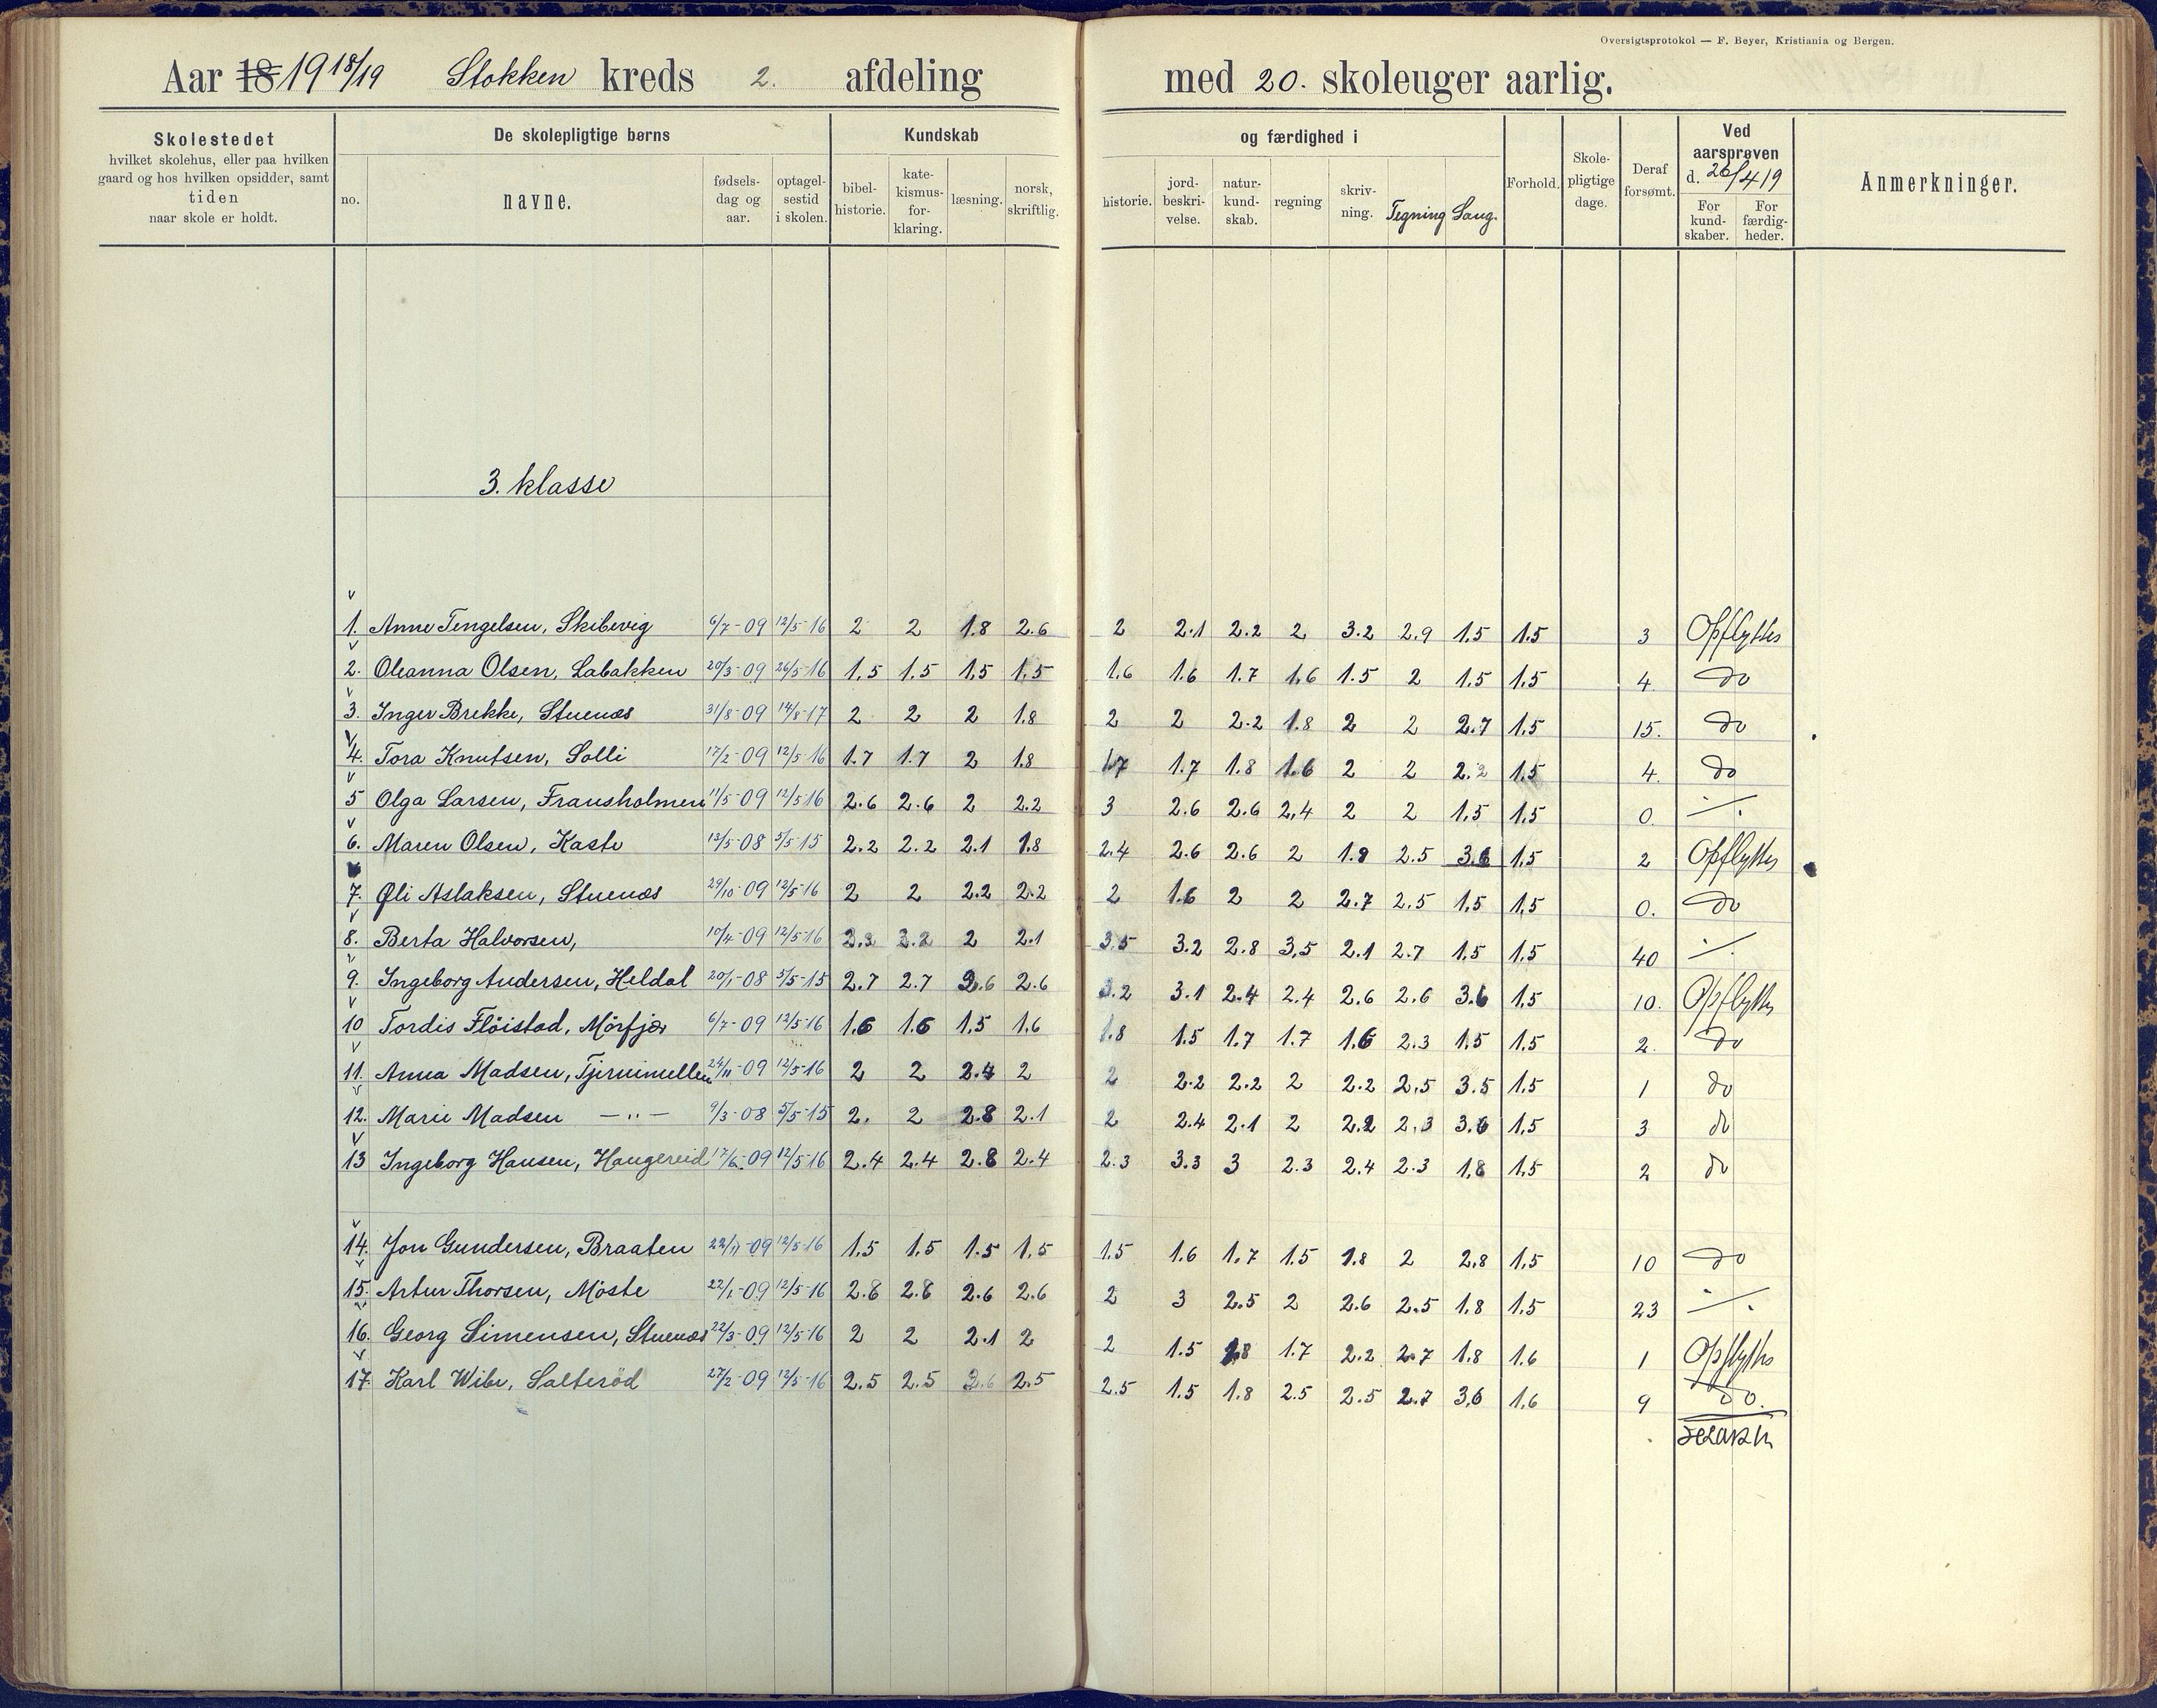 Oversigtsprotokol — F. Beyer, Kristiania og Bergen.
Aar 18 19 18/19 Stokken kreds 2. afdeling med 20. skoleuger aarlig.
Skolestedet
hvilket skolehus, eller paa hvilken
gaard og hos hvilken opsidder, samt
tiden
naar skole er holdt.
De skolepligtige børns
no.
navne.
fødsels-
dag og
aar.
optagel-
sestid
i skolen.
Kundskab
bibel-
historie.
kate-
kismus-
for-
klaring.
læsning.
norsk,
skriftlig.
og færdighed i
historie.
jord-
beskri-
velse.
natur-
kund-
skab.
regning
skriv-
ning.
Tegning
Sang.
Forhold.
Skole-
pligtige
dage.
Deraf
forsømt.
Ved
aarsprøven
d. 26/4 19
For
kund-
skaber.
For
færdig-
heder.
Anmerkninger.
3. klasse
1. Anne Tengelsen, Skibevig 6/7-09 12/5-16 2 2 1.8 2.6 2 2.1 2.2 2 3.2 2.9 1.5 1.5 3 Opflyttes
2. Oleanna Olsen, Labakken 20/3-09 26/5-16 1.5 1.5 1.5 1.5 1.6 1.6 1.7 1.6 1.5 2 1.5 1.5 4. do
3. Inger Brekke, Stuenæs 31/8-09 14/8-17 2 2 2 1.8 2 2 2.2 1.8 2 2 2.7 1.5 15. do
4. Tora Knutsen, Solli 17/2-09 12/5-16 1.7 1.7 2 1.8 1.7 1.7 1.8 1.6 2 2 2.2 1.5 4. do
5 Olga Larsen, Fransholmen 11/5-09 12/5 16 2.6 2.6 2 2.2 3 2.6 2.6 2.4 2 2 1.5 1.5 0. ./.
6. Maren Olsen, Kaste 13/5-08 5/5-15 2.2 2.2 2.1 1.8 2.4 2.6 2.6 2 1.9 2.5 3.6 1.5 2 Opflyttes
7. Øli Aslaksen, Stuenæs 29/10-09 12/5-16 2 2 2.2 2.2 2 1.6 2 2 2.7 2.5 1.5 1.5 0. do
8. Berta Halvorsen, 10/4-09 12/5-16 3.2 3.2 2 2.1 3.5 3.2 2.8 3.5 2.1 2.7 1.5 1.5 40 ./.
9. Ingeborg Andersen, Heldal 20/1-08 5/5-15 2.7 2.7 2.6 2.6 3.2 3.1 2.4 2.4 2.6 2.6 3.6 1.5 10. Opflyttes
10 Tordis Flöistad, Mörfjær 6/7-09 12/5-16 1.6 1.6 1.5 1.6 1.8 1.5 1.7 1.7 1.6 2.3 1.5 1.5 2. do
11. Anna Madsen, 24/11-09 12/5-16 2 2 2.4 2 2 2.2 2.2 2 2.2 2.5 3.5 1.5 1 do
12. Marie Madsen — " — 9/3-08 5/5-15 2. 2 2.8 2.1 2 2.4 2.1 2 2.2 2.3 3.6 1.5 3 do
13 Ingeborg Hansen, Haugereid 17/6-09 12/5-16 2.4 2.4 2.8 2.4 2.3 3.3 3 2.3 2.4 2.3 1.8 1.5 2 do
14. Jon Gundersen, Braaten 22/11-09 12/5-16 1.5 1.5 1.5 1.5 1.5 1.6 1.7 1.5 1.8 2 2.8 1.5 10 do
15. Artur Thorsen, Möste 22/1-09 12/5-16 2.8 2.8 2.6 2.6 2 3 2.5 2 2.6 2.5 1.8 1.5 23 ./.
16. Georg Simensen, Stuenæs 22/3-09 12/5-16 2 2 2.1 2 2 1.5 1.8 1.7 2.2 2.7 1.8 1.6 1 Opflyttes
17. Karl Wibe, Salteröd 27/2-09 12/5-16 2.5 2.5 2.6 2.5 2.5 1.5 1.8 2.5 2.5 2.7 3.6 1.6 9 do.